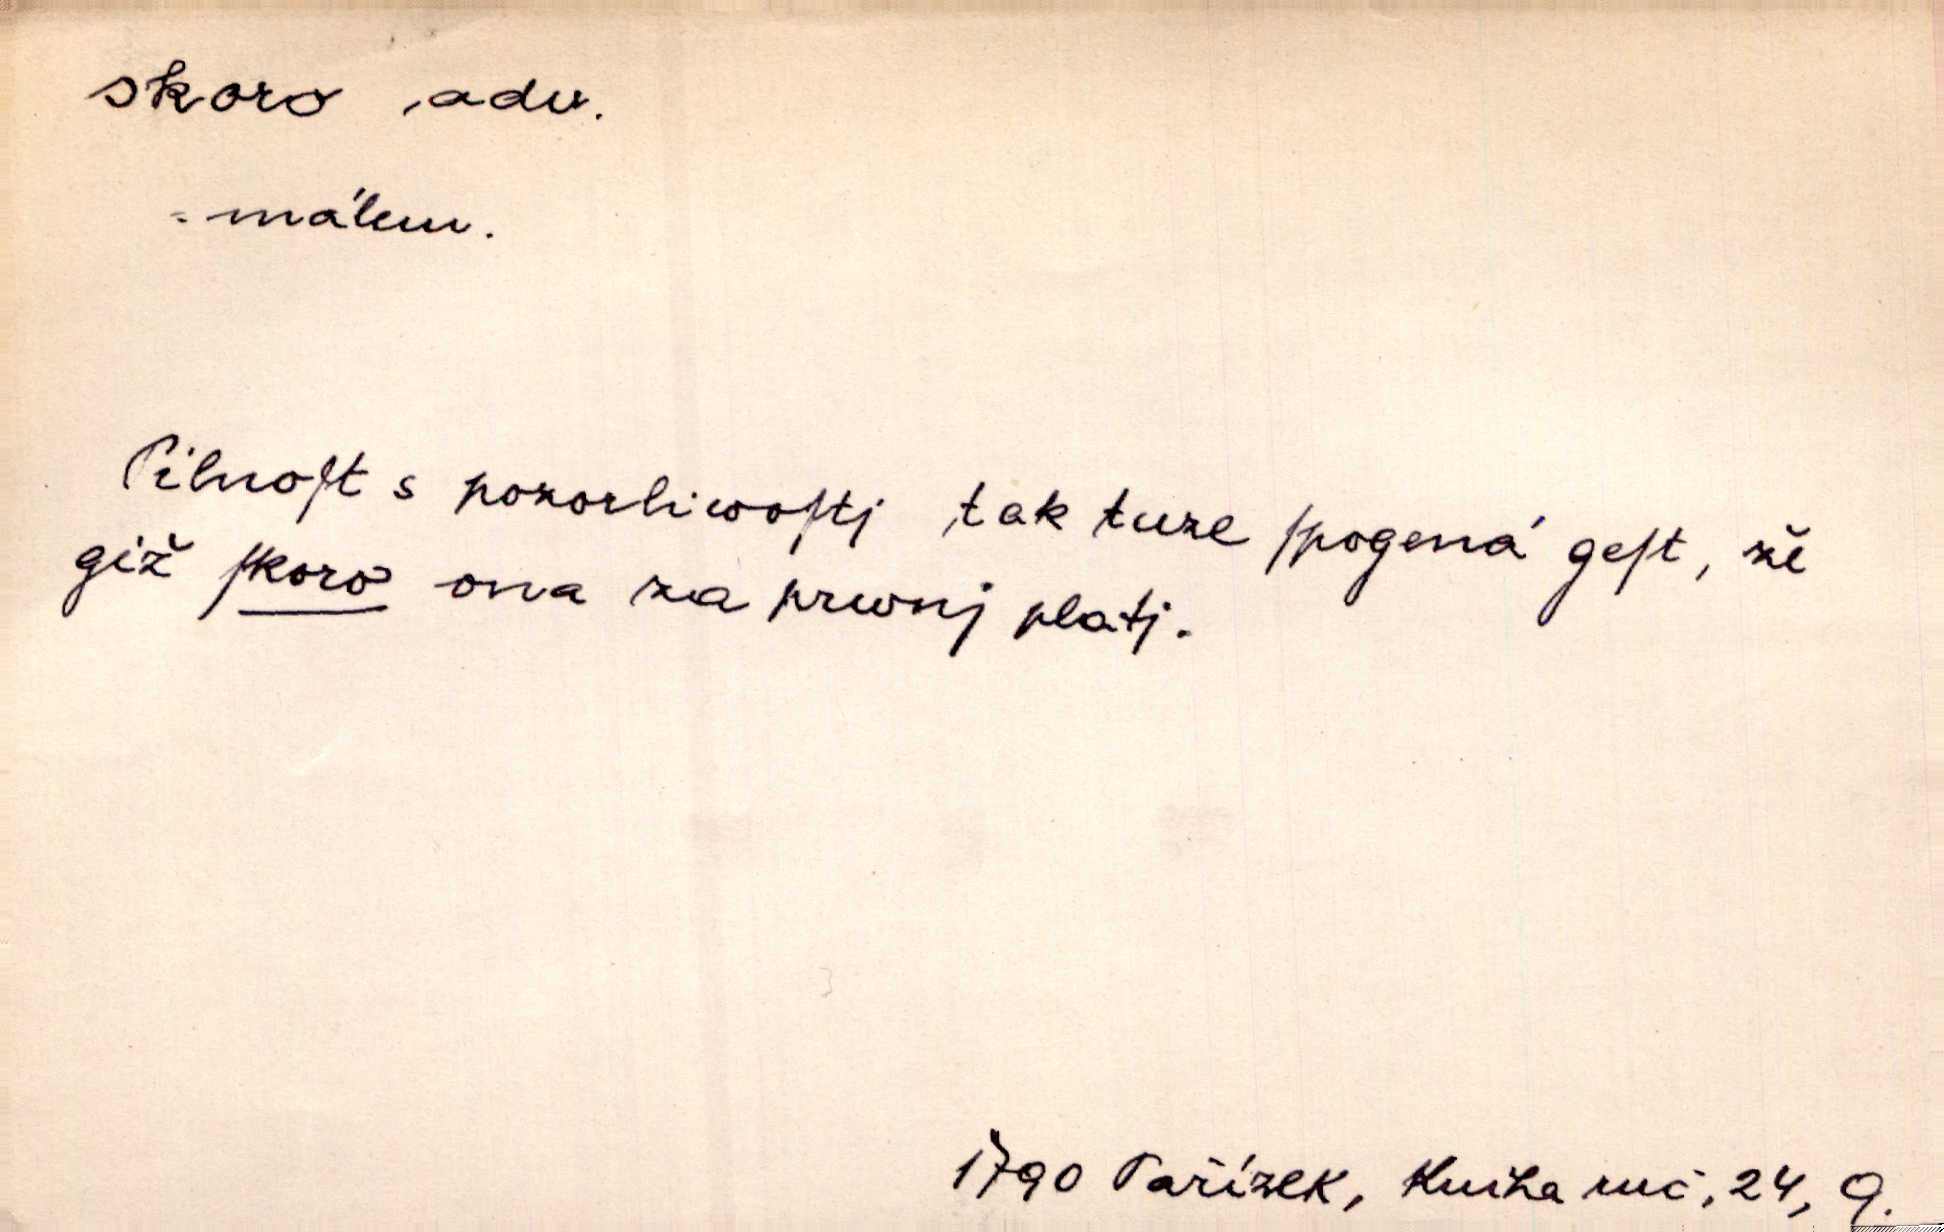 skoro, adv.
- málem.
Pilnoſt s pozorliwoſtj tak tuze ſpogená geſt, že
giž ſkoro ona za prwnj platj.
1790 Pařízek, Kniha ruč, 24, 9.